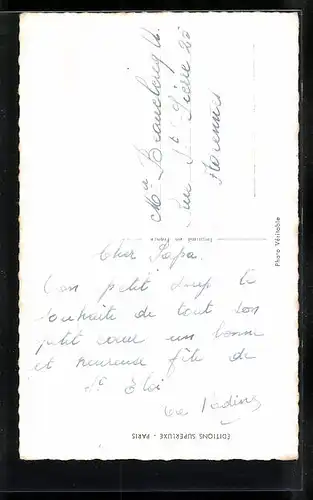 Mr
Rue St Pierre 22
Florennes
Imprimé en France
Photo Véritable
Cher Papa.
Ton petit loup te
souhaite de tout son
petit cœur une bonne
et heureuse fête de
St Eloi
ÉDITIONS SUPERLUXE - PARIS